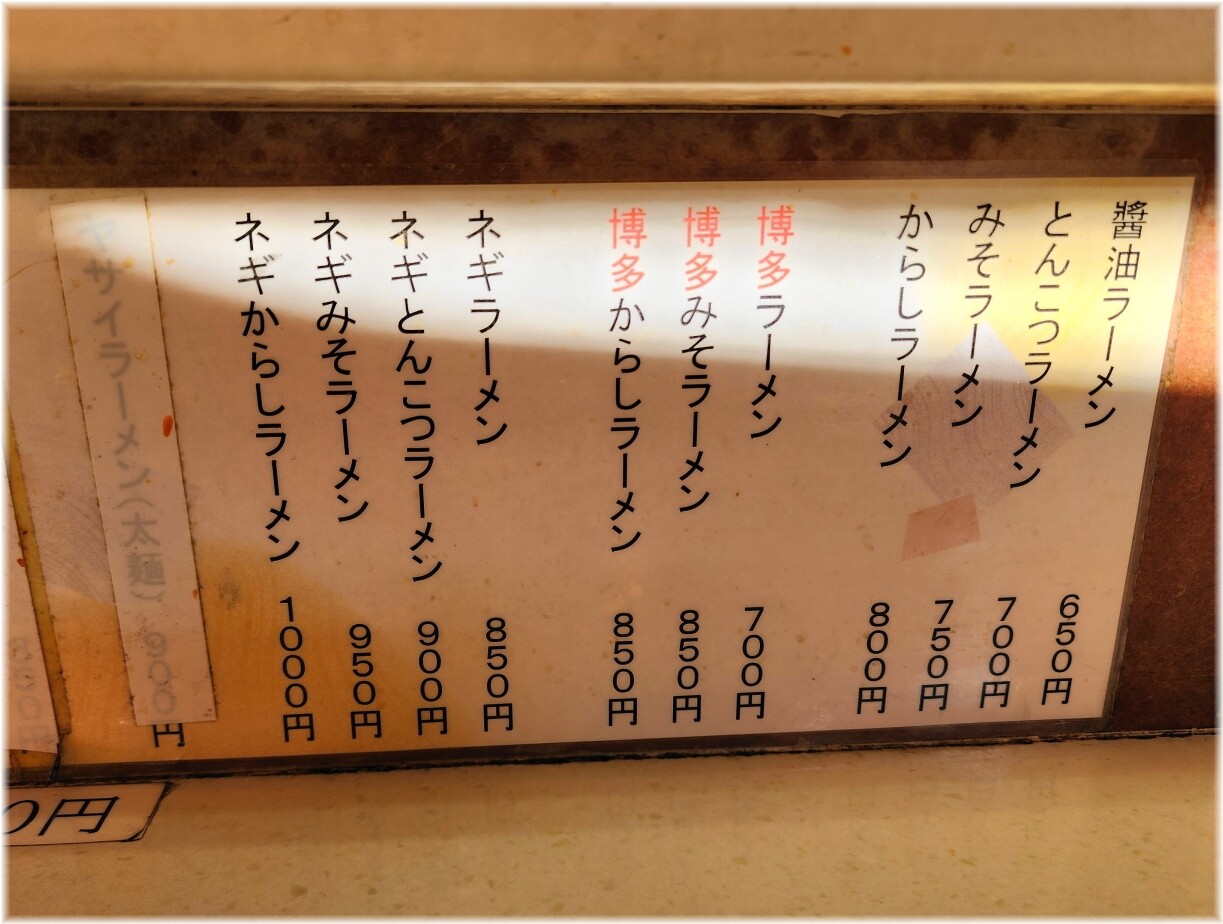 醬油ラーメン 650円
とんこつラーメン 700円
みそラーメン 750円
からしラーメン 800円
博多ラーメン 700円
博多みそラーメン 850円
博多からしラーメン 850円
ネギラーメン 850円
ネギとんこつラーメン 900円
ネギみそラーメン 950円
ネギからしラーメン 1000円
ヤサイラーメン(太麺) 900円
0円